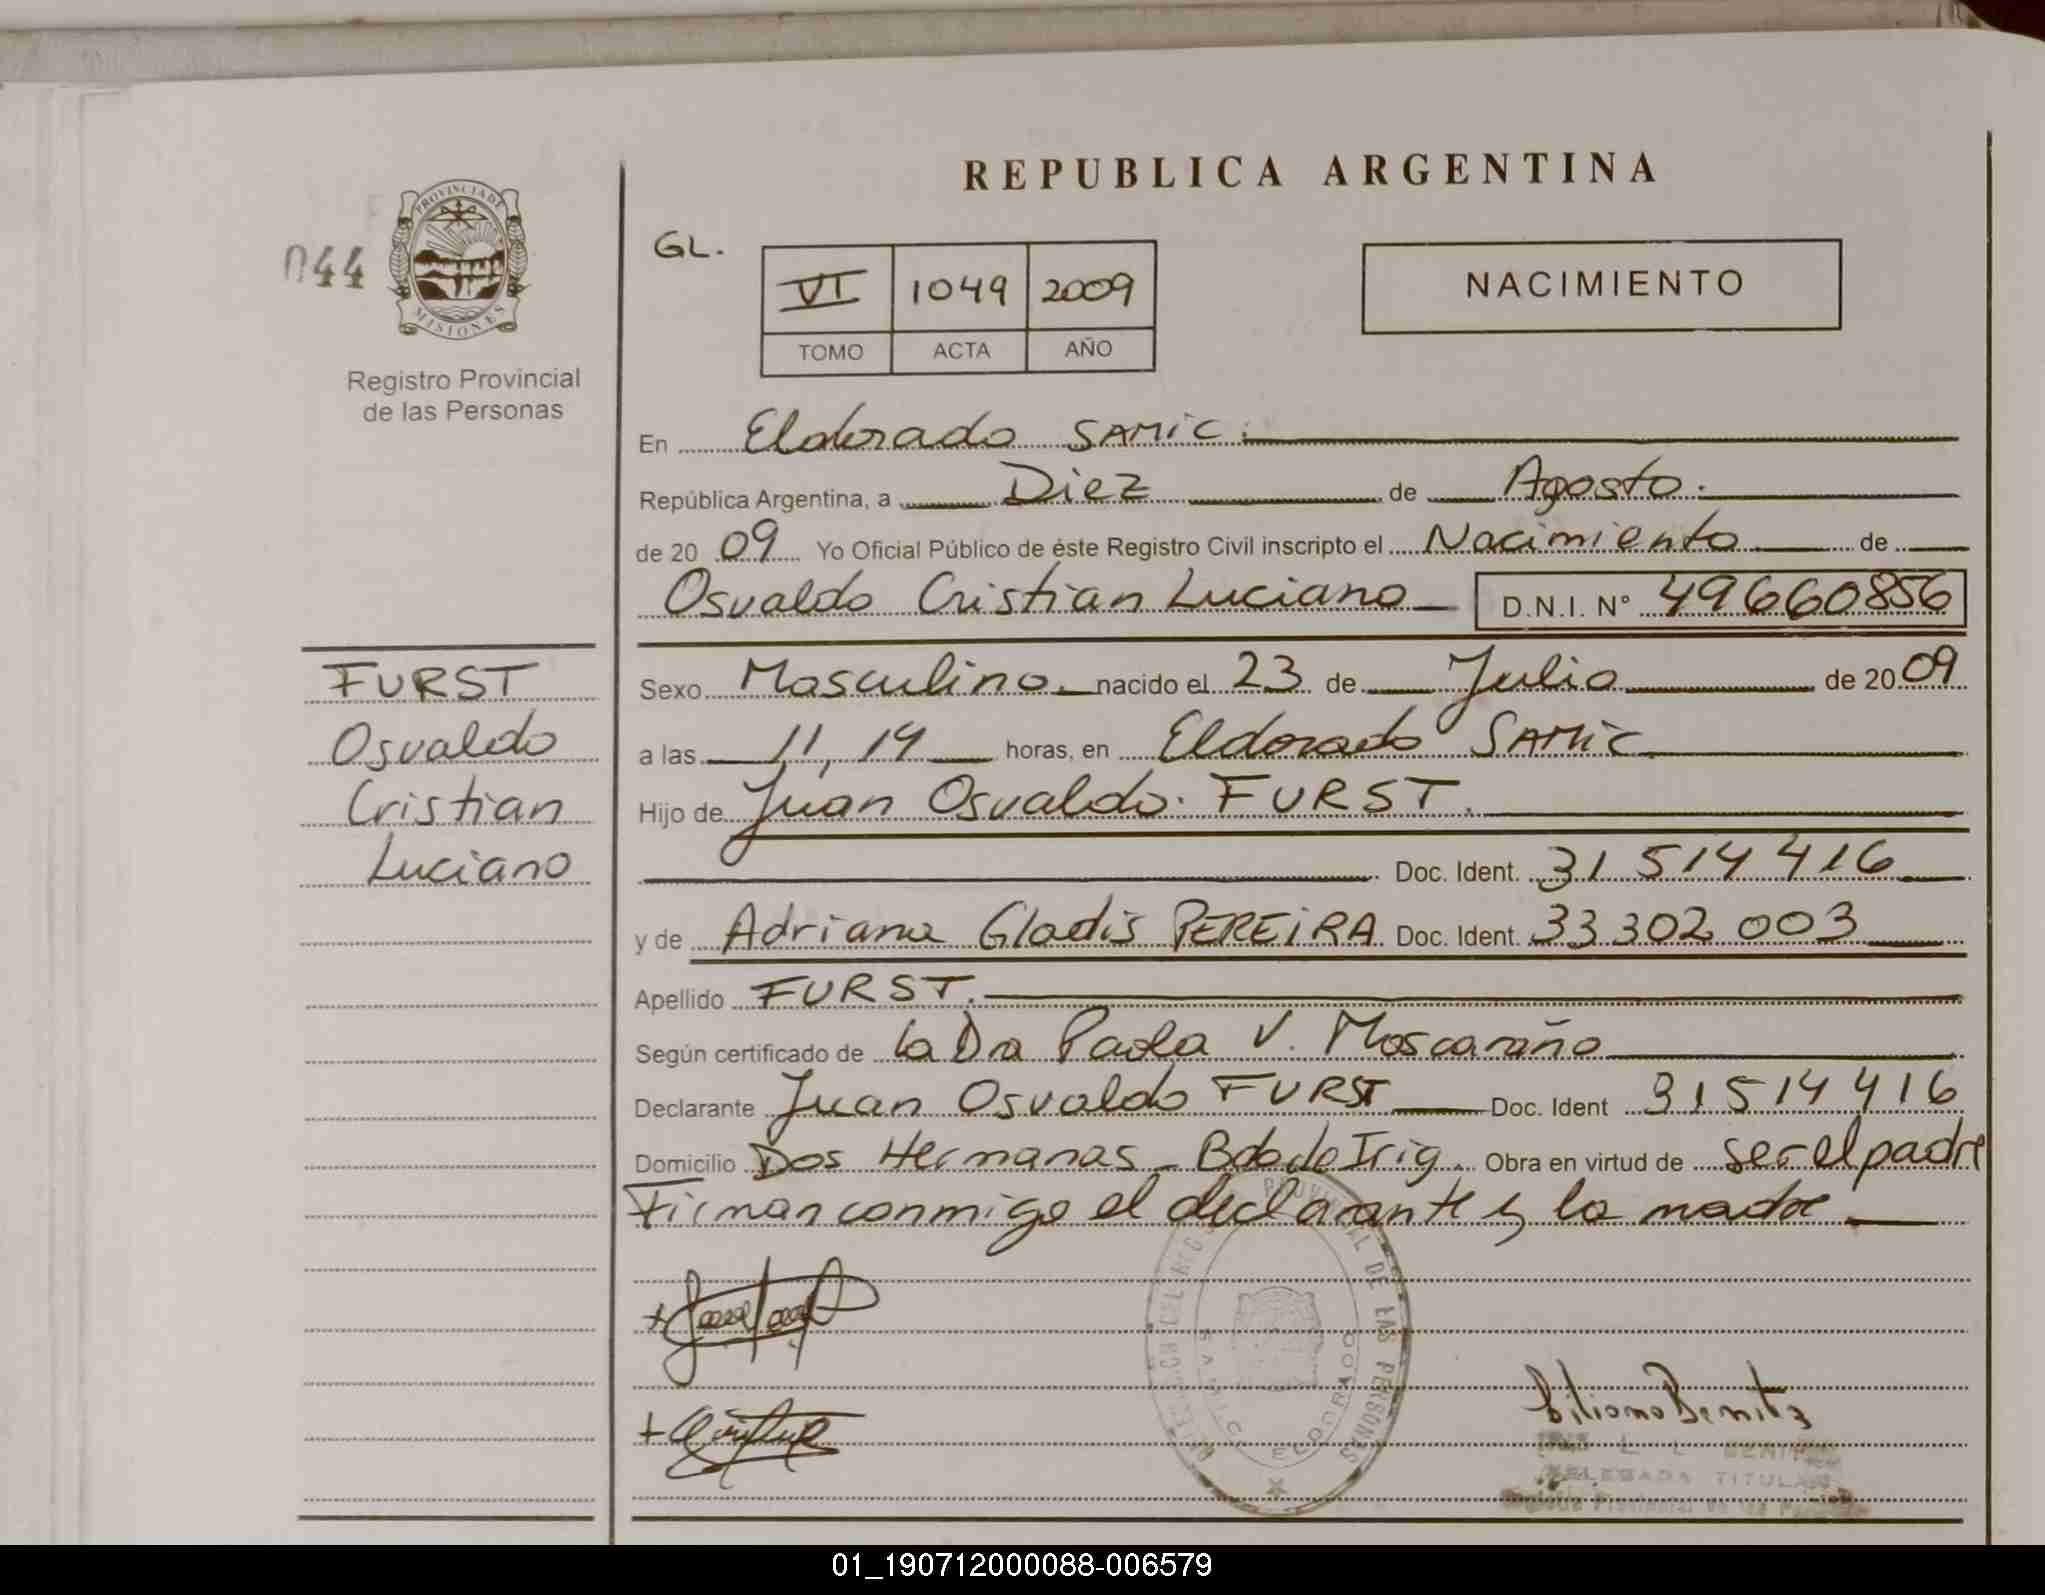 REPUBLICA ARGENTINA
044
PROVINCIA DE
MISIONES
Registro Provincial
de las Personas
GL.
VI 1049 2009
TOMO ACTA AÑO
NACIMIENTO
En Eldorado SAMIC.
República Argentina, a Diez de Agosto.
de 20 09 Yo Oficial Público de éste Registro Civil inscripto el Nacimiento de
Osvaldo Cristian Luciano D.N.I. N° 49660856
FURST
Osvaldo
Cristian
Luciano
Sexo Masculino. nacido el 23 de Julio de 20 09
a las 11,14 horas, en Eldorado SAMIC
Hijo de Juan Osvaldo. FURST.
Doc. Ident. 31 514 416
y de Adriana Gladis PEREIRA Doc. Ident. 33 302 003
Apellido FURST.
Según certificado de la Dra Paola V.
Declarante Juan Osvaldo FURST Doc. Ident 31514416
Domicilio Dos Hermanas - Bdo de Irig. Obra en virtud de ser el padre
Firman conmigo el declarante y la madre
PROVINCIAL DE LAS PERSONAS
SAMIC ELDORADO
Liliana Benitez
L. L. BENITEZ
DELEGADA TITULAR
Registro Provincial de las Personas
01_190712000088-006579